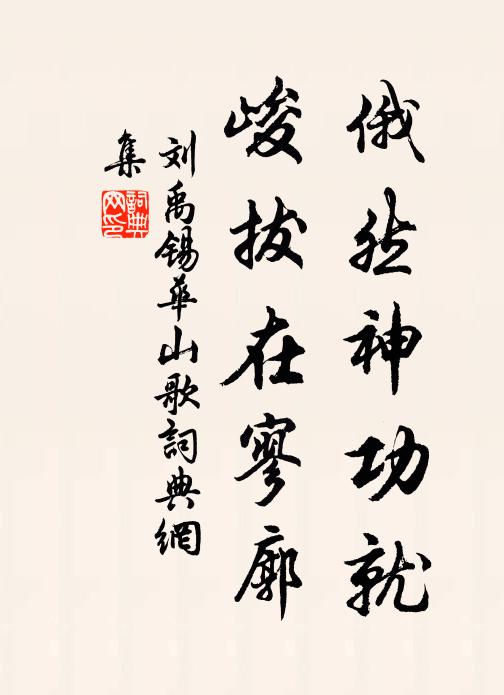 俄然神功就
峻拔在寥廓
刘禹锡华山歌詞典網
集
詞典
网印